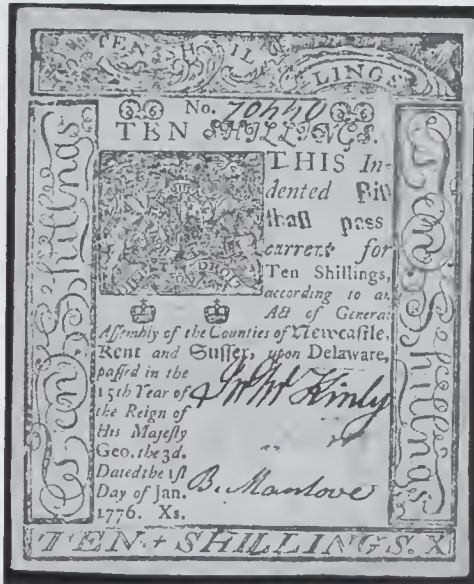 TEN SHILLINGS
No. 70540
TEN SHILLINGS.
THIS In-
dented Bill
shall pass
current for
Ten Shillings,
according to an
Act of General
Assembly of the Counties of Newcastle,
Kent and Sussex, upon Delaware,
passed in the
15th Year of
the Reign of
His Majesty
Geo. the 3d.
Dated the 1st
Day of Jan.
1776. Xs.
Jn McKinly
B. Manlove
Ten Shillings
Ten Shillings
DROIT
TEN + SHILLINGS. X